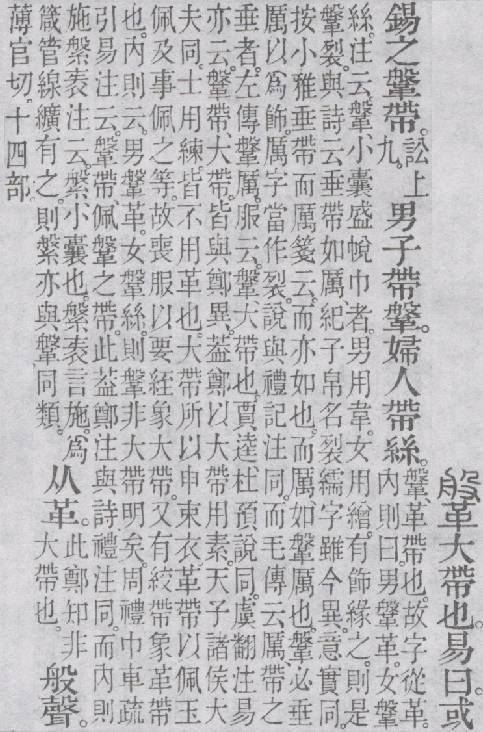 鞶大帶也。易曰。或
錫之鞶帶。訟上九。男子帶鞶。婦人帶絲。鞶、革帶也。故字從革。內則曰。男鞶革。女鞶
絲。注云。鞶小囊盛帨巾者。男用韋。女用繒。有飾緣之。則是
鞶裂與。詩云。垂帶如厲。紀子帛名裂繻。字雖今異。意實同。
按小雅垂帶而厲。箋云。而亦如也。而厲如鞶厲也。鞶必垂
厲以爲飾。厲字當作裂。說與禮記注同。而毛傳云。厲帶之
垂者。左傳鞶厲。服云。鞶大帶也。賈逵、杜預說同。虞翻注易
亦云。鞶帶、大帶。皆與鄭異。葢鄭以大帶用素。天子諸侯大
夫同。士用練。皆不用革也。大帶所以申束衣。革帶以佩玉
佩及事佩之等。故喪服以要絰象大帶。又有絞帶象革帶
也。內則云。男鞶革。女鞶絲。則鞶非大帶明矣。周禮巾車疏
引易注云。鞶帶、佩鞶之帶。此葢鄭注。與詩禮注同。而內則
施縏袠。注云。縏、小囊也。縏袠言施。爲
箴管線纊有之。則縏亦與鞶同類。
从革。此鄭知非大帶也。般聲。
薄官切。十四部。